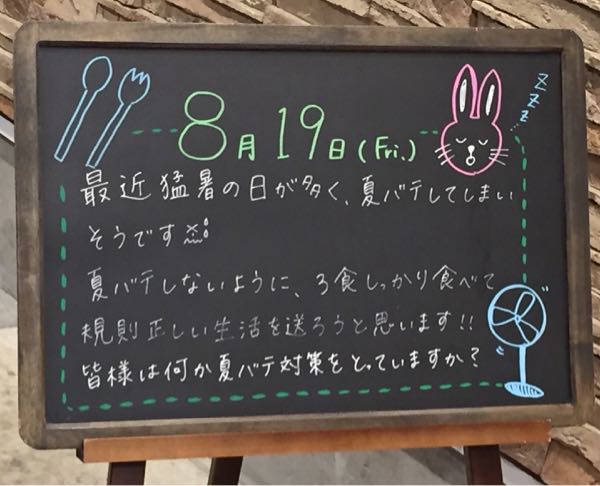 8月19日(Fri.)
zzz
最近猛暑の日が多く、夏バテしてしまい
そうです
夏バテしないように、3食しっかり食べて
規則正しい生活を送ろうと思います!!
皆様は何か夏バテ対策をとっていますか?